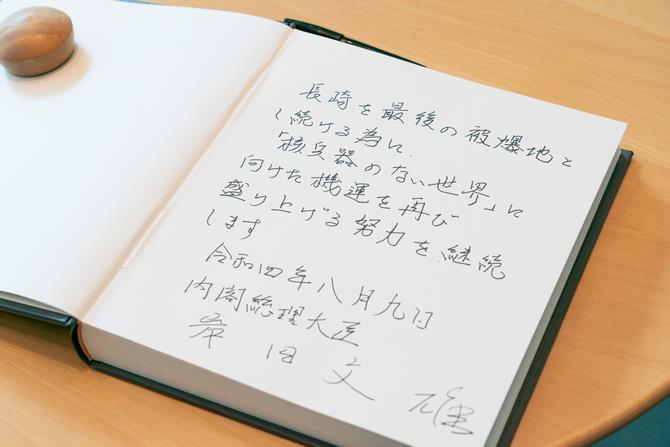 長崎を最後の被爆地と
し続ける為に、
「核兵器のない世界」に
向けた機運を再び
盛り上げる努力を継続
します
令和四年八月九日
内閣総理大臣
岸田文雄